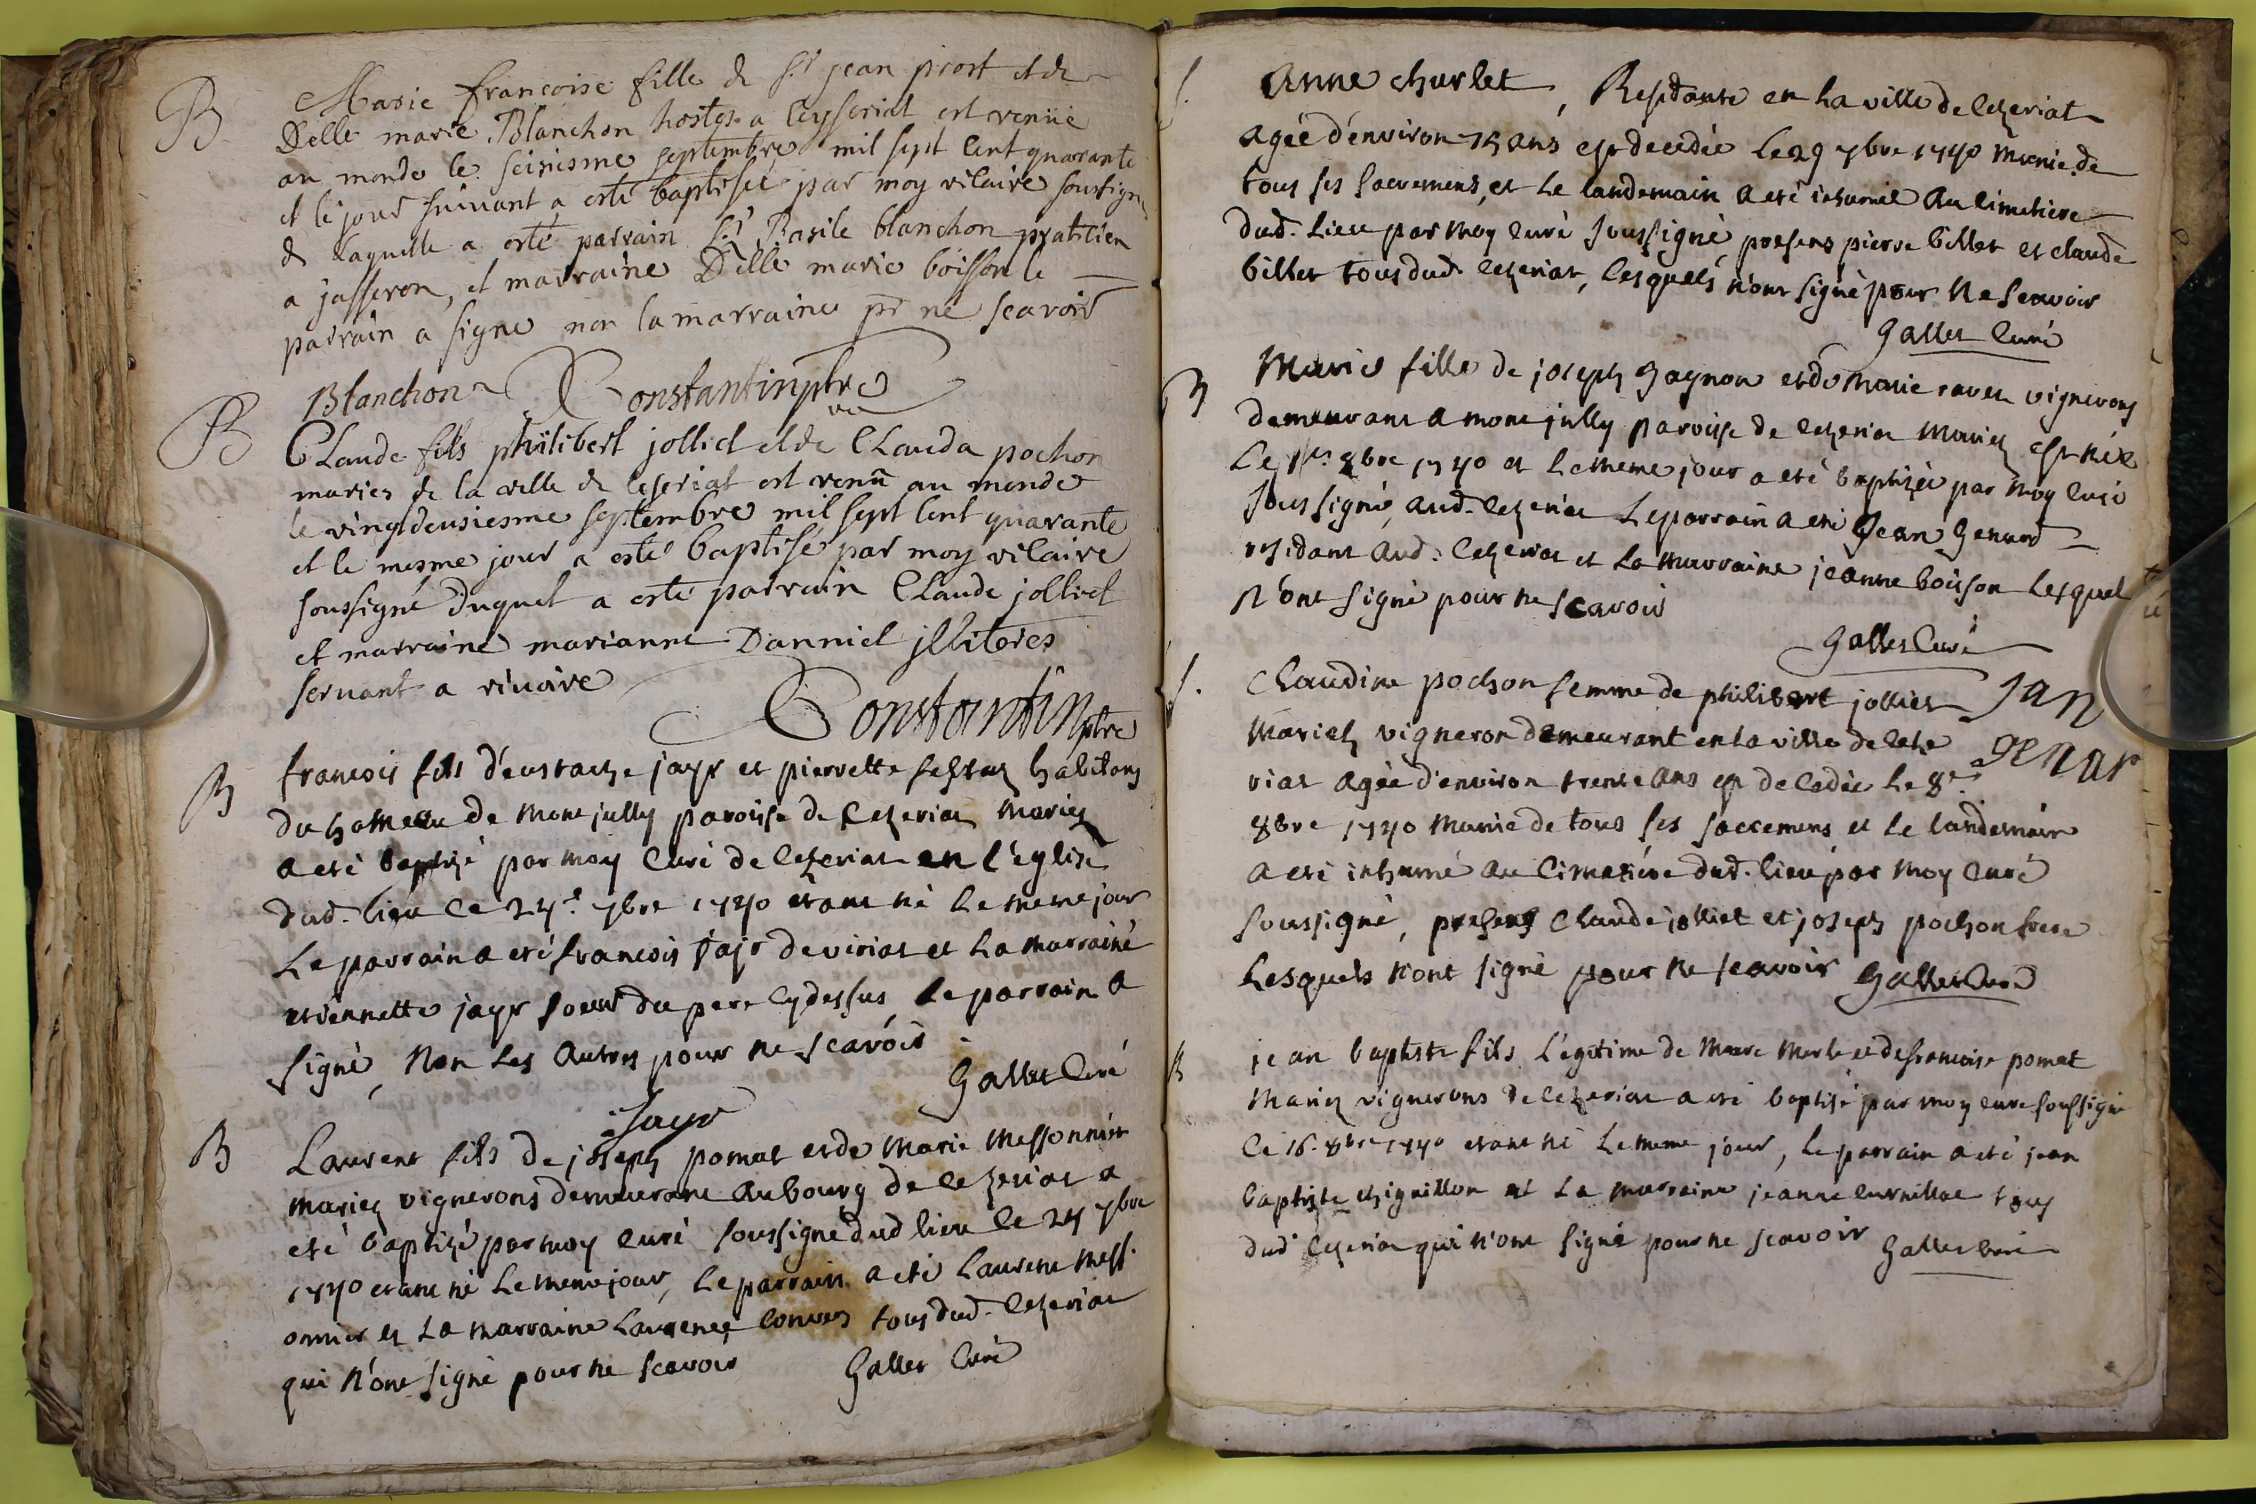 B
Marie francoise fille de sr jean prost et de
Delle marie Blanchon hostes a ceyseriat est venüe
au monde le seisiesme septembre mil sept cent quarante
et le jour suivant a esté baptisée par moy vicaire soussigné
de laquelle a esté parrain sr Basile blanchon pratitien
a jasseron, et marraine Delle marie boisson le
parrain a signe non la marraine pr ne scavoir
Blanchon Constantin ptre
B
CLaude fils philibert jolliet et de CLauda pochon
maries de la ville de ceseriat est venü au monde
le vingdeusiesme septembre mil sept cent quarante
et le mesme jour a esté baptisé par moy vicaire
soussigné duquel a esté parrain CLaude jolliet
et marraine marianne Danniel jlliteres
servant a rivoire
Constantin ptre
B
francois fils d'eustache jayr et pierrette habitans
du hameau de mont jully paroisse de Cezeriat mariez
a eté baptizé par moy Curé de Cezeriat en l'eglise
dud. lieu le 24e 7bre 1740 etant né le meme jour
Le parrain a eté francois jayr de viriat et la marraine
etiennette jayr soeur du pere cydessus, le parrain a
signé, Non les autres pour ne scavoir
Gallet Curé
Jayr
B
Laurent fils de joseph pomat et de Marie Messonnier
mariez vignerons demeurant au bourg de cezeriat a
eté baptizé par moy curé soussigné dud lieu le 24 7bre
1740 etant né le meme jour, le parrain a eté Laurent mess.
onnier et La marraine Laurence tous dud. cezeriat
qui n'ont signé pour ne scavoir Gallet Curé
S.
Anne churlet, Residante en la ville de cezeriat
agée d'environ 75 ans est decedée le 29 7bre 1740 munie de
tous ses sacremens, et le landemain a eté inhumée au cimetiere
dud. lieu par moy curé soussigné, presens pierre billet et claude
billet tous dud. cezeriat, lesquels n'ont signé pour ne scavoir
Gallet Curé
B
Marie fille de joseph Gagnon et de marie ravet vignerons
demeurant a mont jully paroisse de cezeriat mariez est née
Le 1er 8bre 1740 et le meme jour a eté baptizée par moy curé
soussigné, aud. cezeriat Le parrain a eté Jean Genard
residant aud. cezeriat et la marraine jeanne boisson lesquel
n'ont signé pour ne scavoir
Gallet Curé
Jan
genar
S.
Claudine pochon femme de philibert jolliet
mariez vigneron demeurant en la ville de ceze
riat agée d'environ trente ans est decedée le 8e
8bre 1740 munie de tous ses sacremens et le landemain
a eté inhumé au Cimetiere dud. lieu par moy curé
soussigné, presens Claude jolliet et joseph pochon frere
Lesquels n'ont signé pour ne scavoir Gallet Curé
B
jean baptiste fils Légitime de marc et de francoise pomat
mariez vignerons de cezeriat a eté baptisé par moy curé soussigné
le 16. 8bre 1740 etant né le meme jour, le parrain a eté jean
baptiste chignillon et la marraine jeanne tous
dud. cezeriat qui n'ont signé pour ne scavoir Gallet Curé